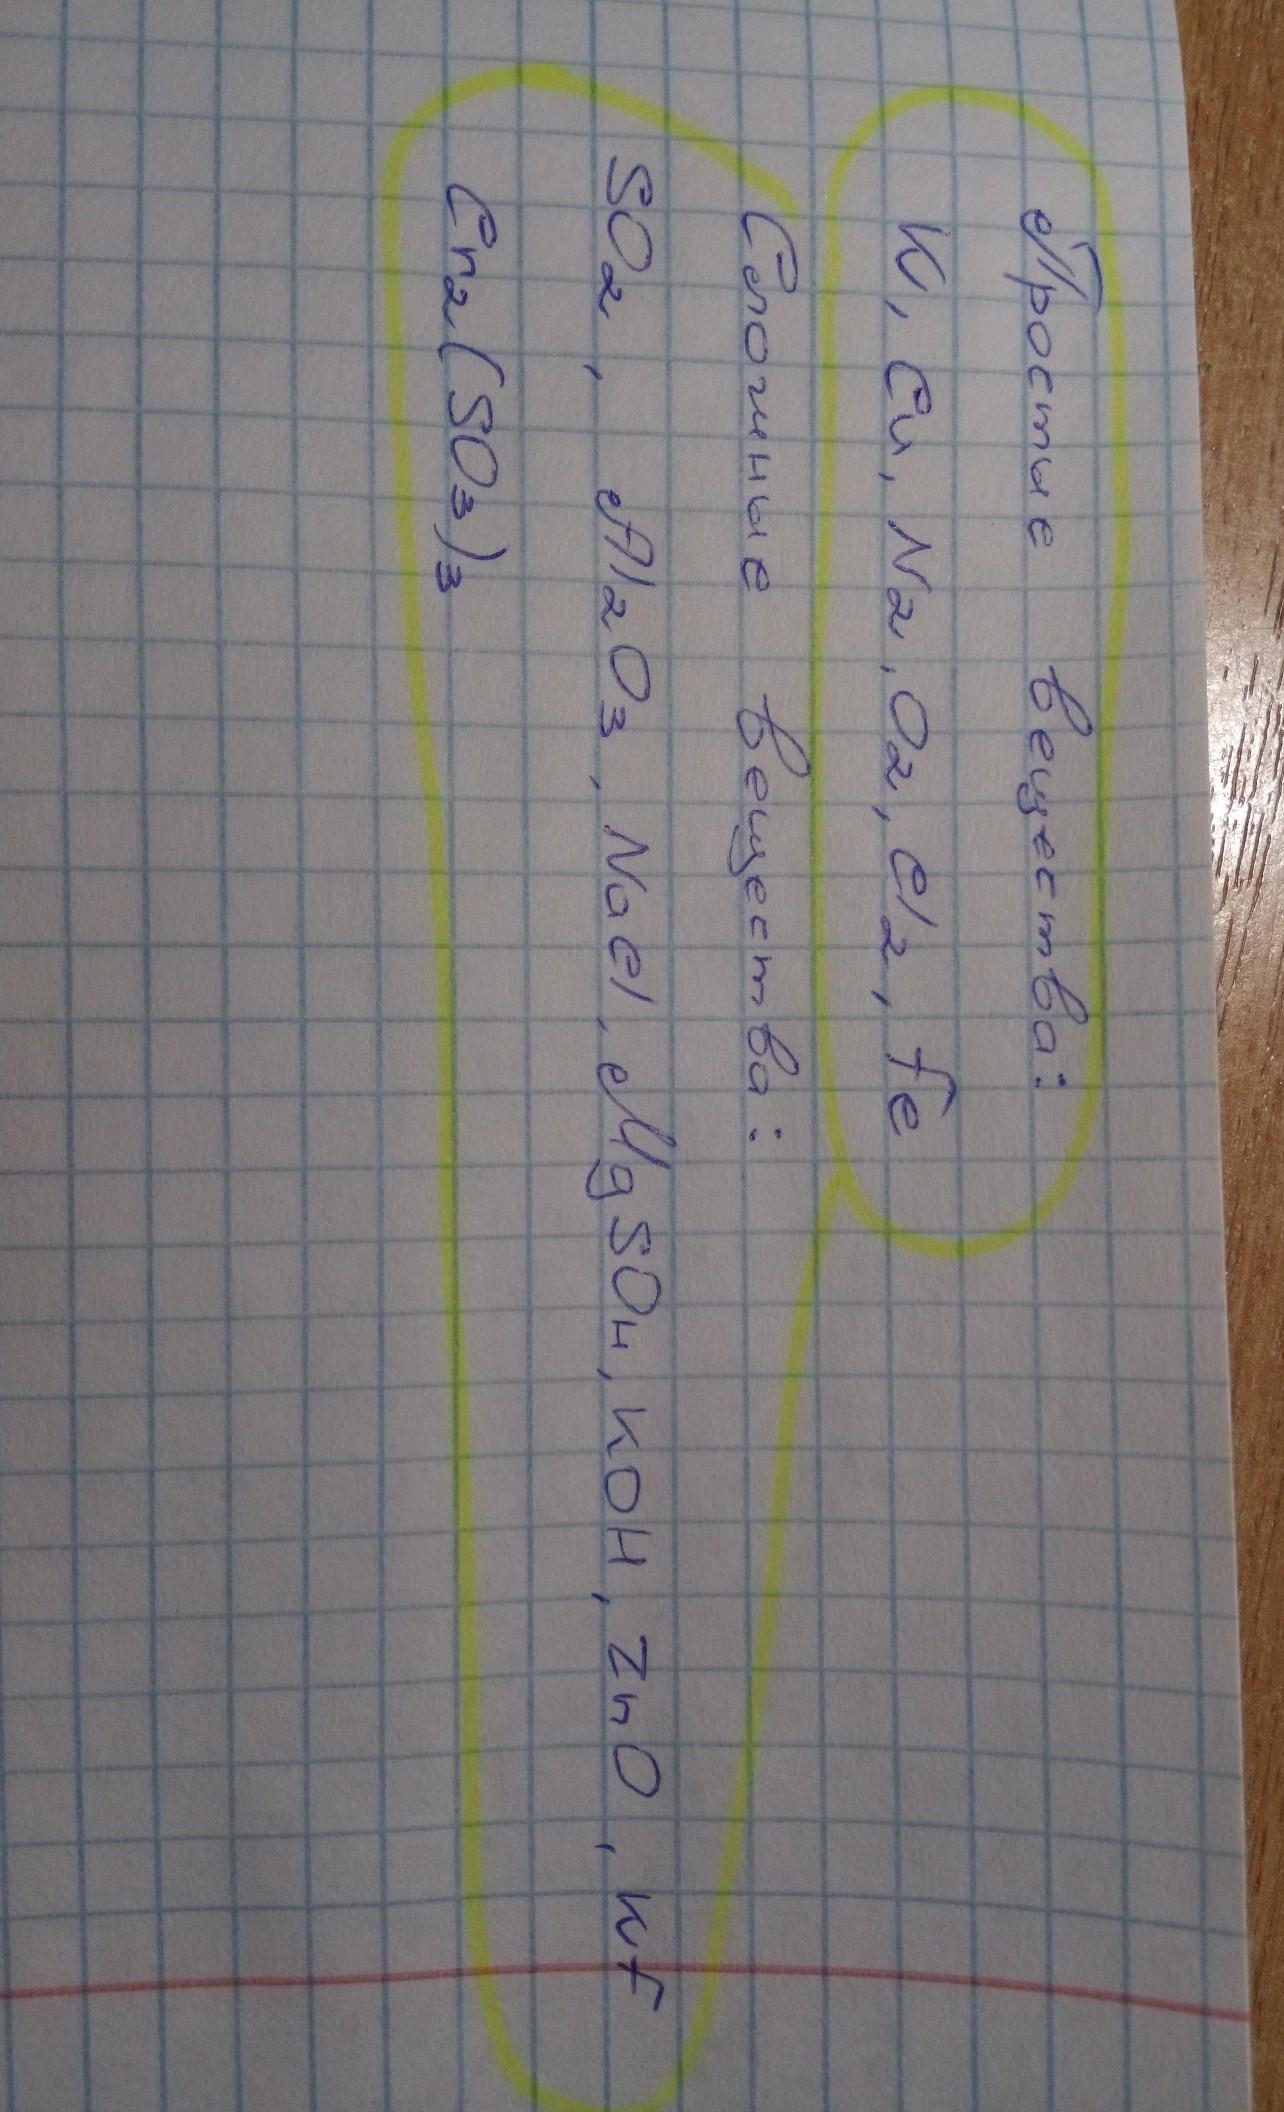 Простые вещества:
K, Cu, N2, O2, Cl2, Fe
Сложные вещества:
SO2, Al2O3, NaCl, MgSO4, KOH, ZnO, KF
Cr2(SO3)3